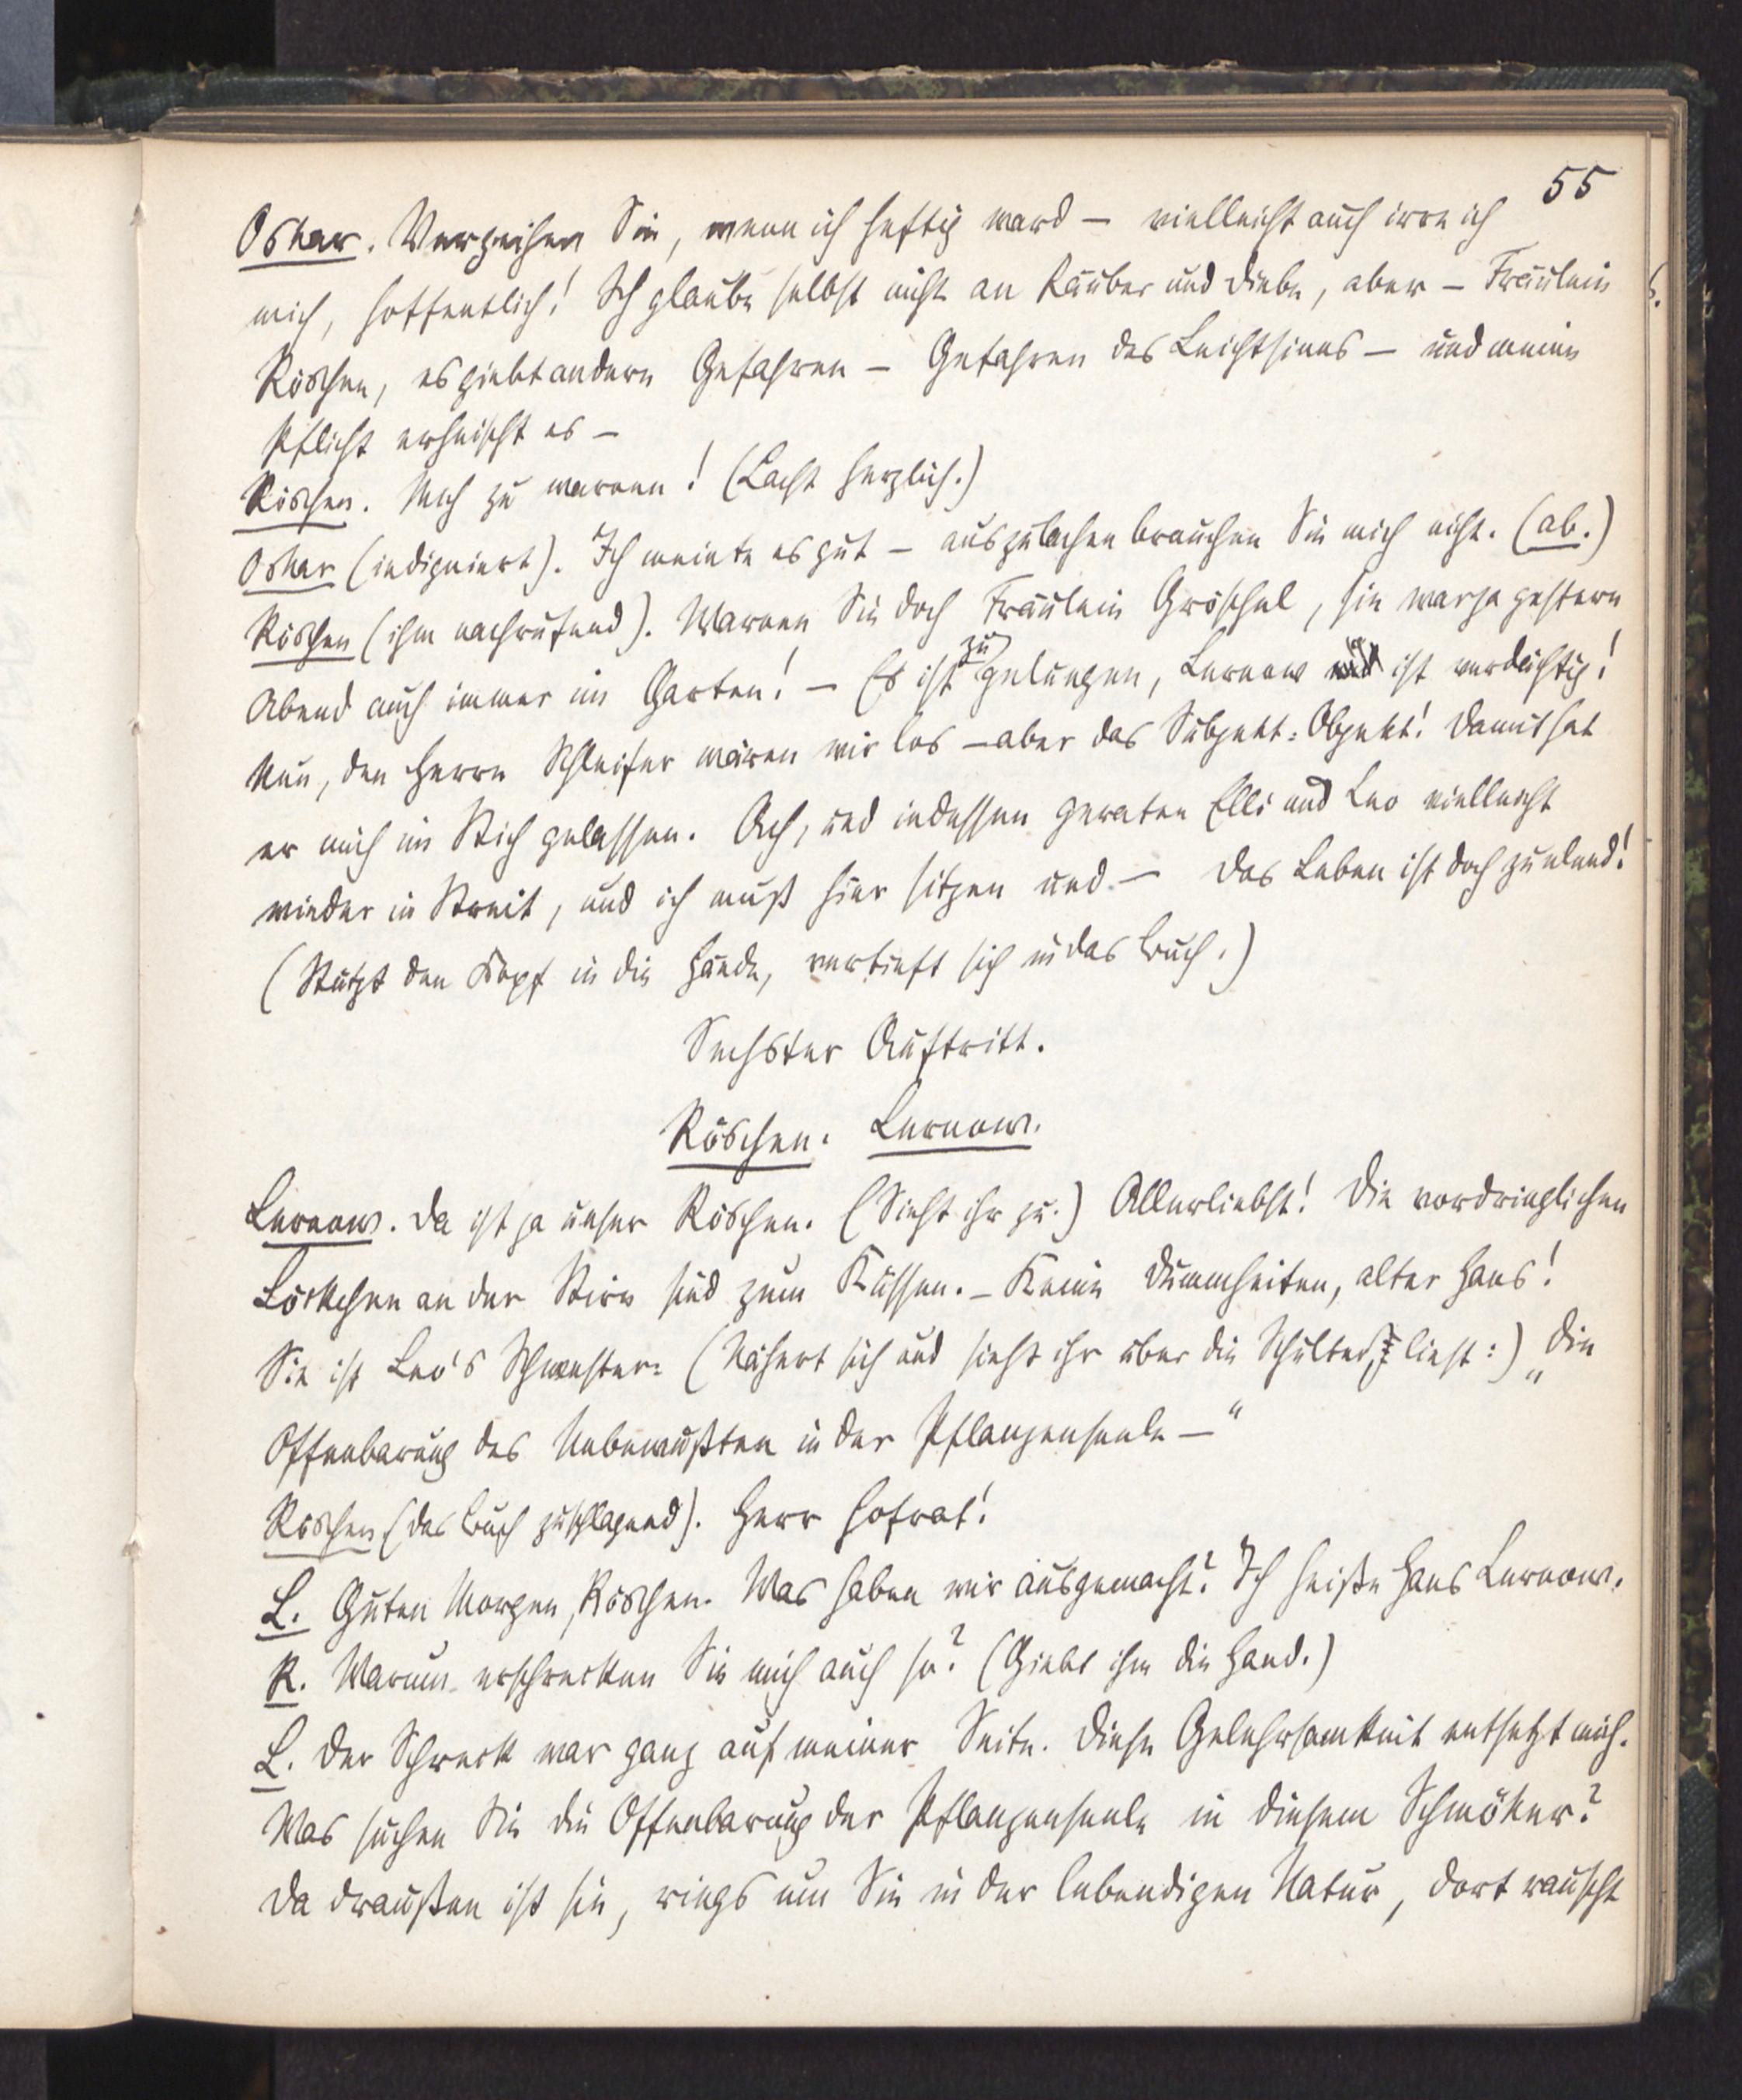 55
Oskar. Verzeihen Sie, wenn ich heftig ward — vielleicht auch irre ich
mich, hoffentlich! Ich glaube selbst nicht an Räuber und Diebe, aber — Fräulein
Röschen, es giebt andere Gefahren — Gefahren des Leichtsinns — und meine
Pflicht erheischt es —
Röschen. Mich zu warnen! (Lacht herzlich.)
Oskar (indigniert). Ich meinte es gut — auszulachen brauchen Sie mich nicht. (ab.)
Röschen (ihm nachrufend). Warnen Sie doch Fräulein Gröschel, sie war ja gestern
Abend auch immer im Garten! — Es ist zu gelungen, Lernow ist verdächtig!
Nun, den Herrn Schleifer wären wir los — aber das Subjekt-Objekt! Damit hat
er mich im Stich gelassen. Ach, und indessen geraten Elli und Leo vielleicht
wieder in Streit, und ich muß hier sitzen und — Das Leben ist doch zu elend!
(Stützt den Kopf in die Hände, vertieft sich in das Buch.)
Sechster Auftritt.
Röschen. Lernow.
Lernow. Da ist ja unser Röschen. (Sieht ihr zu.) Allerliebst! Die vordringlichen
Löckchen an der Stirn sind zum Küssen. — Keine Dummheiten, alter Hans!
Sie ist Leo's Schwester. (Nähert sich und sieht ihr über die Schulter, liest:) „Die
Offenbarung des Unbewußten in der Pflanzenseele —“
Röschen (das Buch zuschlagend). Herr Hofrat!
L. Guten Morgen, Röschen. Was haben wir ausgemacht? Ich heiße Hans Lernow.
R. Warum erschrecken Sie mich auch so? (Giebt ihm die Hand.)
L. Der Schreck war ganz auf meiner Seite. Diese Gelehrsamkeit entsetzt mich.
Was suchen Sie die Offenbarung der Pflanzenseele in diesem Schmöker?
Da draußen ist sie, rings um Sie in der lebendigen Natur, dort rauscht